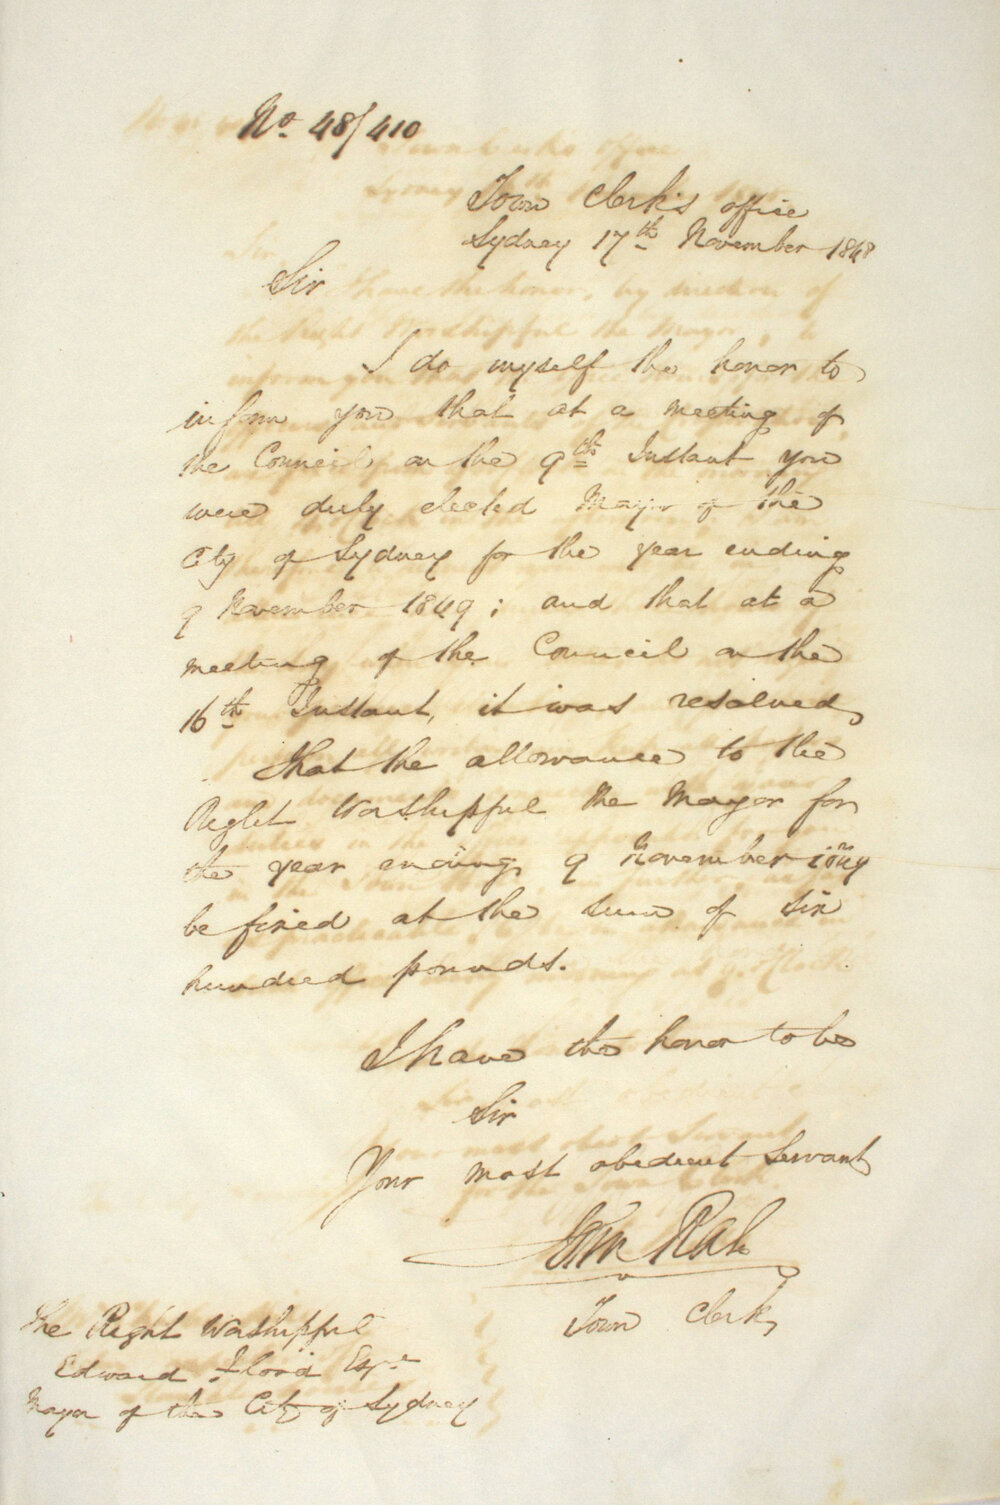 No. 48/410
Town Clerk's office
Sydney 17th November 1848
Sir
I do myself the honor to
inform you that at a meeting of
the Council on the 9th Instant you
were duly elected Mayor of the
City of Sydney for the year ending
9 November 1849; and that at a
meeting of the Council on the
16th Instant, it was resolved,
That the allowance to the
Right Worshipful the Mayor for
the year ending 9 November
be fixed at the sum of Six
hundred pounds.
I have the honor to be
Sir
Your most obedient Servant
John Rae
Town Clerk,
The Right Worshipful
Edward Flood Esqre
Mayor of the City of Sydney